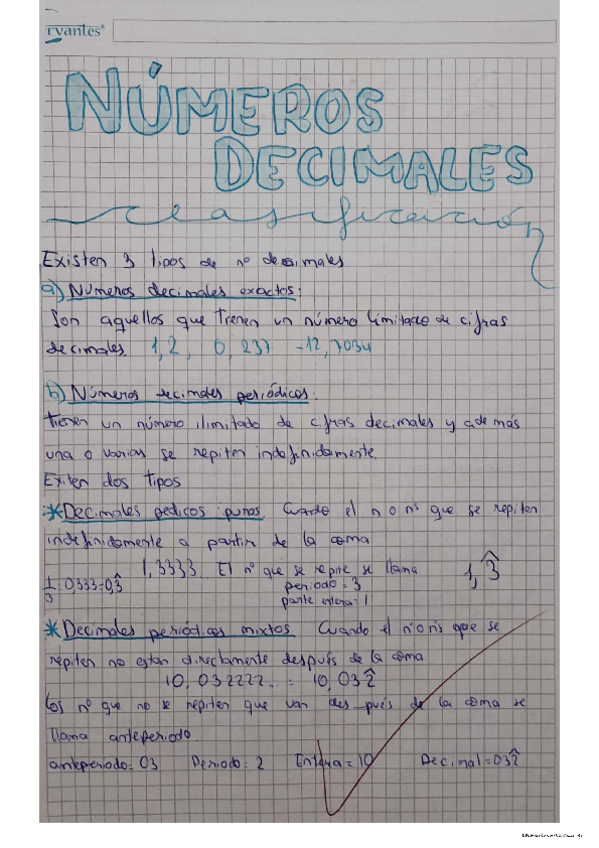 rvantes®
NÚMEROS
DECIMALES
clasificación
Existen 3 tipos de nº decimales
a) Números decimales exactos:
Son aquellos que tienen un número limitado de cifras
decimales 1,2, 0,237 -12,7034
b) Números decimales periódicos:
Tienen un número ilimitado de cifras decimales y además
una o varias se repiten indefinidamente.
Exiten dos tipos
*Decimales pedicos puros. Cuando el n o nºs que se repiten
indefinidamente a partir de la coma
1,3333 El nº que se repite se llama 1,3̂
1/3=0333=0,3̂ periodo=3
parte entera=1
*Decimales periódicos mixtos Cuando el nº o nºs que se
repiten no estan directamente después de la coma
10,032222.. = 10,032̂
Los nº que no se repiten que van des pués de la coma se
llama anteperiodo.
anteperiodo=03 Periodo=2 Entera=10 Decimal=032̂